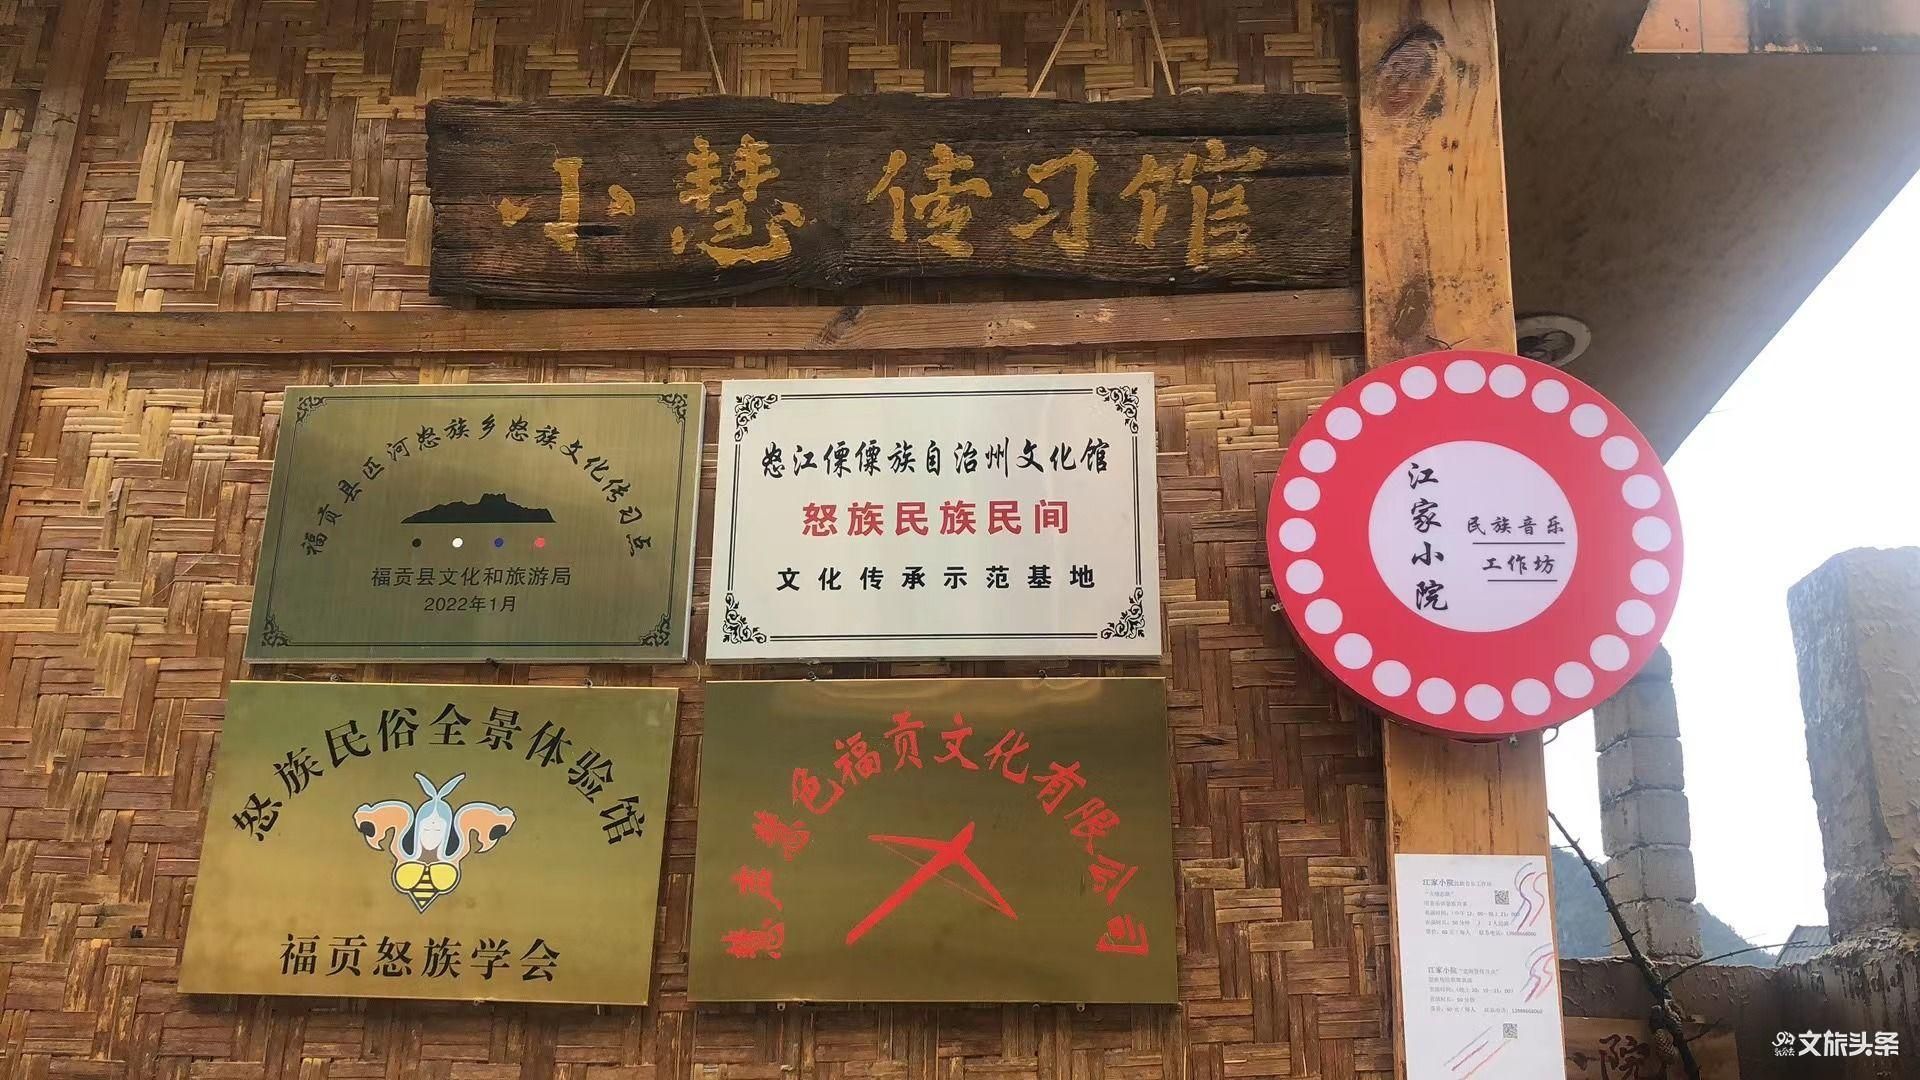 小慧传习馆
福贡县匹河怒族乡怒族文化传习点
福贡县文化和旅游局
2022年1月
怒江傈僳族自治州文化馆
怒族民族民间
文化传承示范基地
江家小院
民族音乐
工作坊
怒族民俗全景体验馆
福贡怒族学会
慧声慧色福贡文化有限公司
江家小院民族音乐工作坊
江家小院
小院
文旅头条